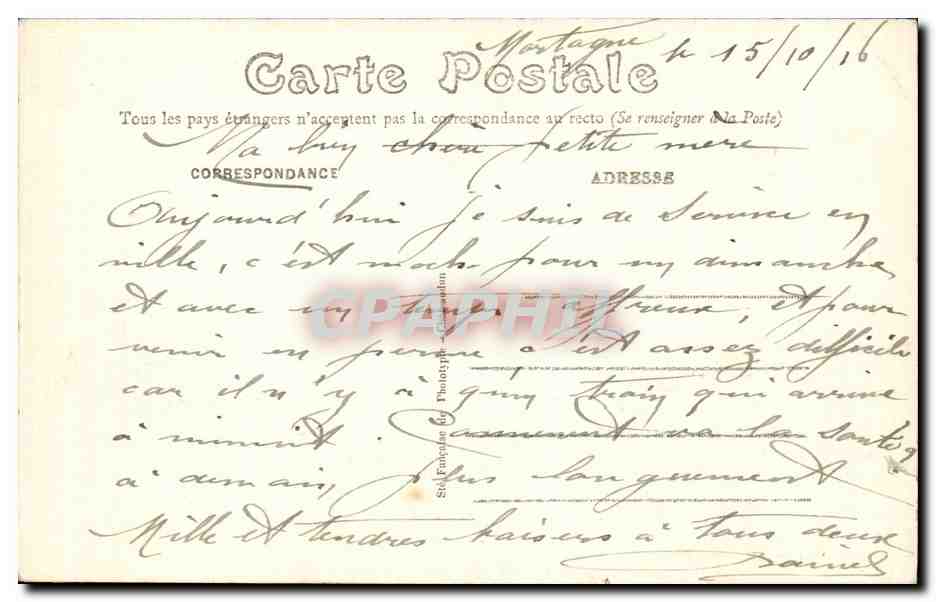 Mortagne le 15/10/16
Carte Postale
Tous les pays étrangers n'acceptent pas la correspondance au recto (Se renseigner à la Poste)
Ma bien chère petite mère
CORRESPONDANCE
ADRESSE
Aujourd'hui je suis de service en
ville, c'est moche pour un dimanche
et avec un temps affreux, et pour
venir en perme c'est assez difficile
car il n'y a qu'un train qui arrive
à minuit. Comment va la santé?
à demain, plus longuement
Mille et tendres baisers à tous deux
Sté Française de Phototypie
CPAPHIL